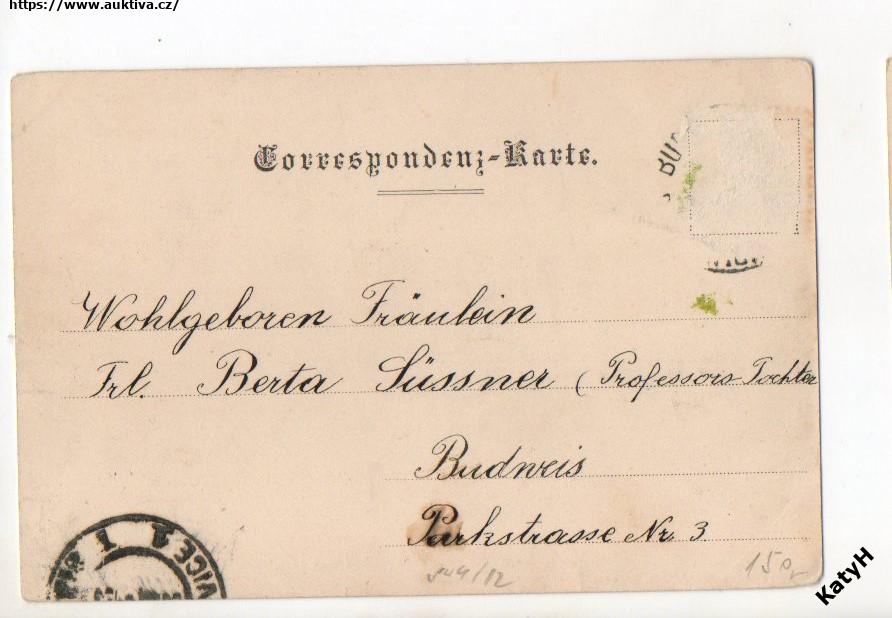 https://www.auktiva.cz/
Correspondenz-Karte.
BU
Wohlgeboren Fräulein
Frl. Berta Süssner (Professors-Tochter
Budweis
Parkstrasse Nr. 3
VICE 1
844/12
150,-
KatyH